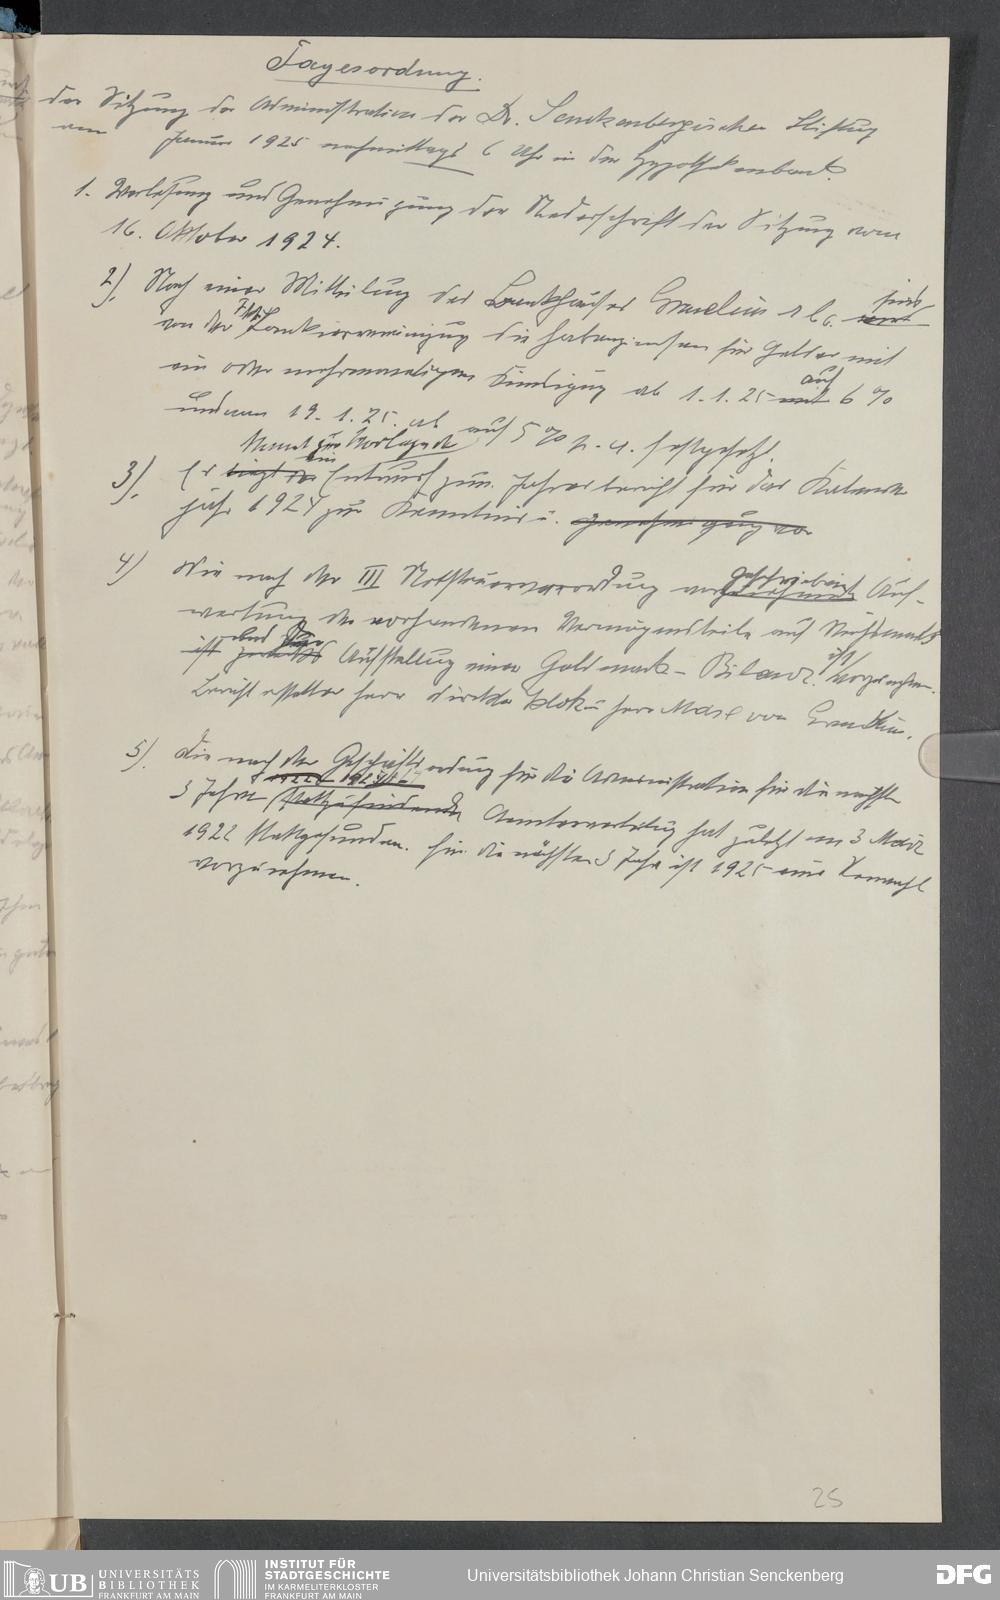 Tagesordnung.
der Sitzung der Administration der Dr. Senckenbergischen Stiftung
am Januar 1925 nachmittags 6 Uhr in der Hypothekenbank
1. Verlesung und Genehmigung der Niederschrift der Sitzung vom
16. Oktober 1924.
2). Nach einer Mitteilung des Bankhauses Grunelius & Co. sind
von der Bankiervereinigung die Habenzinsen für Gelder mit
ein oder mehrmonatigem Kündigung ab 1.1.25 auf 6 %
und vom 19.1.25 ab auf 5 % p. a. festgesetzt.
3). Entwurf zum Jahresbericht für das Kalender
jahr 1924 zur Kenntnis u.
4) Die nach der III Notsteuerverordnung vorgeschriebene Auf-
wertung der vorhandenen Vermögensteile auf
Aufstellung einer Goldmark-Bilanz ist vorzunehmen.
Berichterstatter Herr Direktor Herr Max von Grunelius.
5). Die nach der Geschäftsordnung für die Administration für die nächsten
3 Jahre stattzufindende Ämterverteilung hat zuletzt am 3 März
1922 stattgefunden. Für die nächsten 3 Jahre ist 1925 eine Neuwahl
vorzunehmen.
25
UB UNIVERSITÄTS
BIBLIOTHEK
FRANKFURT AM MAIN
INSTITUT FÜR
STADTGESCHICHTE
IM KARMELITERKLOSTER
FRANKFURT AM MAIN
Universitätsbibliothek Johann Christian Senckenberg
DFG